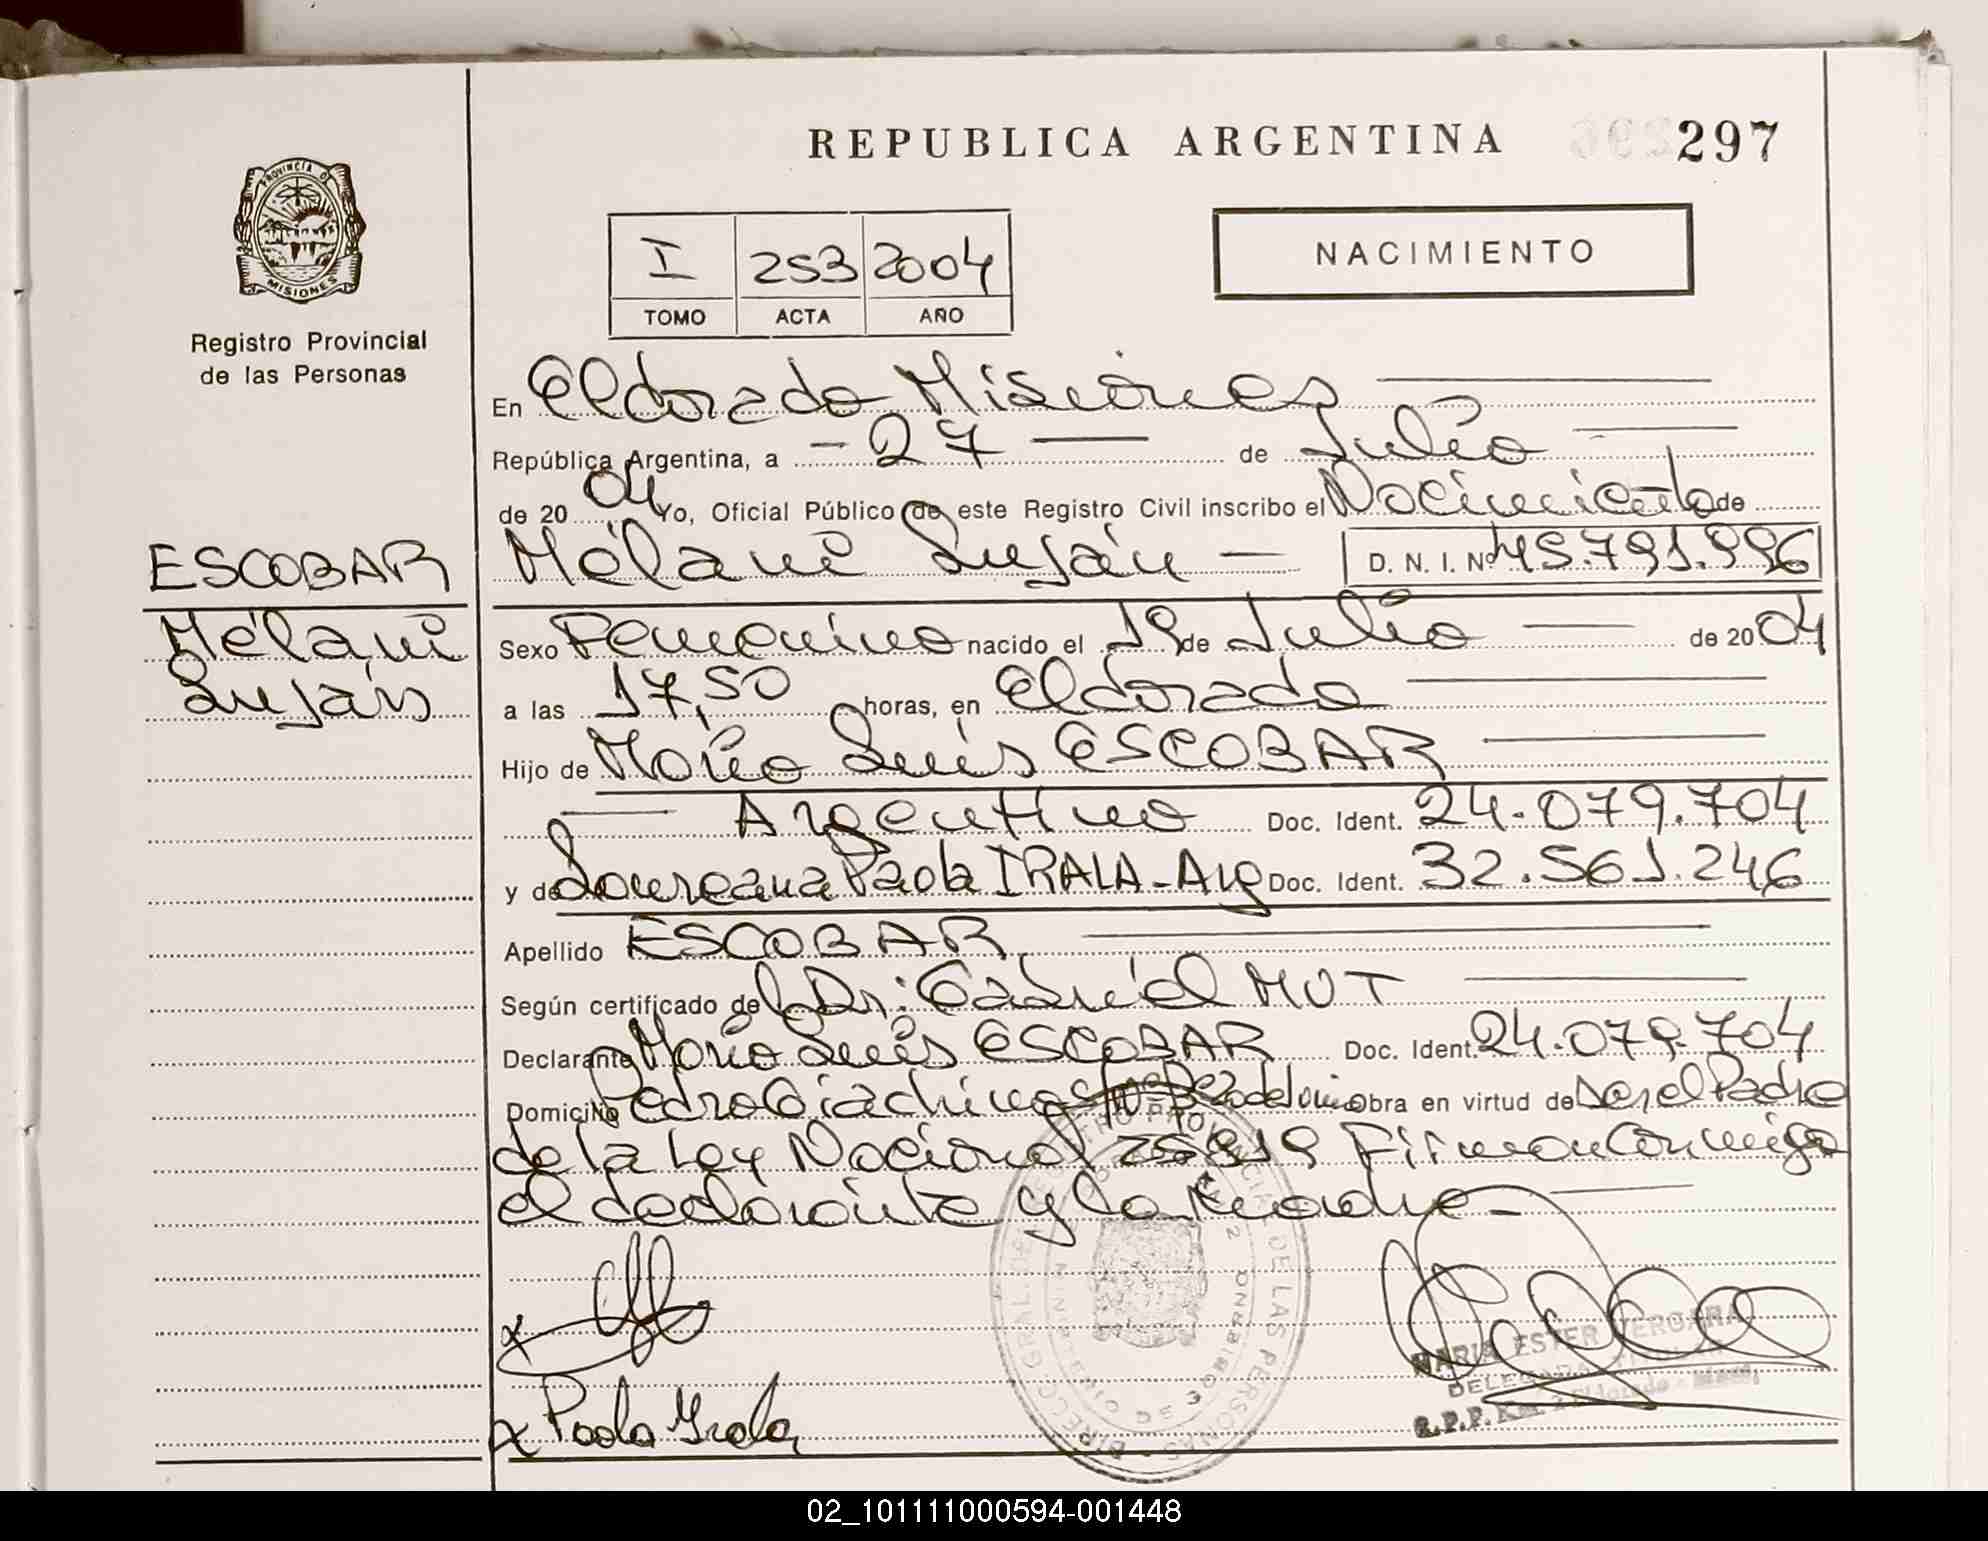 REPUBLICA ARGENTINA 297
PROVINCIA D
MISIONES
Registro Provincial
de las Personas
I 253 2004
TOMO ACTA AÑO
NACIMIENTO
En Eldorado Misiones
República Argentina, a - 27 — de Julio
de 20 04 Yo, Oficial Público de este Registro Civil inscribo el Nacimiento de
ESCOBAR
Mélani
Luján
Mélani Luján — D. N. I. Nº 45.791.996
Sexo Femenino nacido el 19 de Julio — de 20 04
a las 17,50 horas, en Eldorado
Hijo de Mario Luis ESCOBAR
— Argentino Doc. Ident. 24.079.704
y de Paola IRALA - Arg Doc. Ident. 32.561.246
Apellido ESCOBAR
Según certificado de Dr: Gabriel MUT
Declarante Mario Luis ESCOBAR Doc. Ident. 24.079.704
Domicilio Pedro obra en virtud de ser el Padre
de la Ley Nacional Firman Conmigo
el declarante y la madre -
x
x Paola Irala
MARIA ESTER VERGARA
DELEGADA TITULAR
R.P.P. Km. 2 Eldorado - Mnes.
02_101111000594-001448